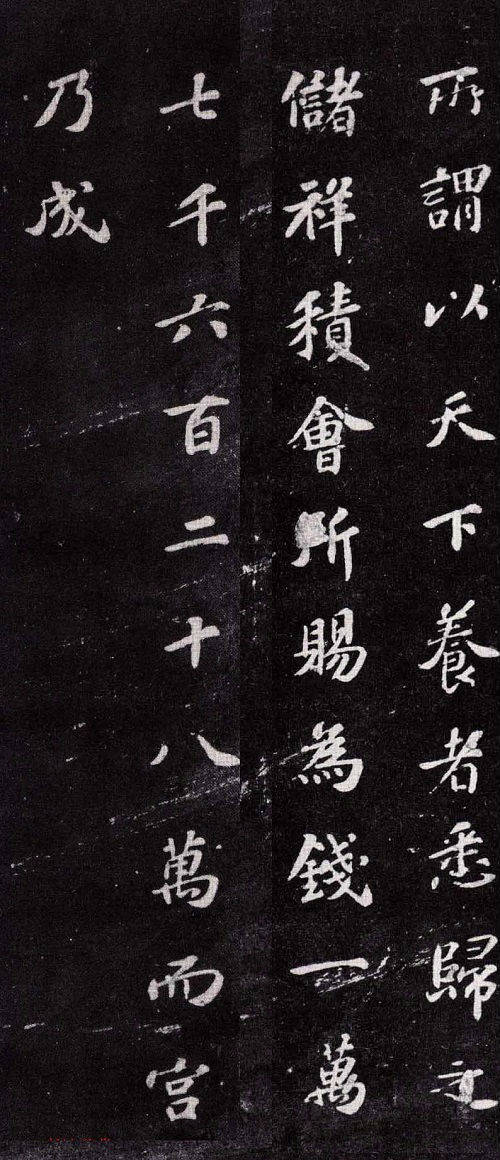 所謂以天下養者悉歸之
儲祥積會所賜為錢一萬
七千六百二十八萬而宮
乃成